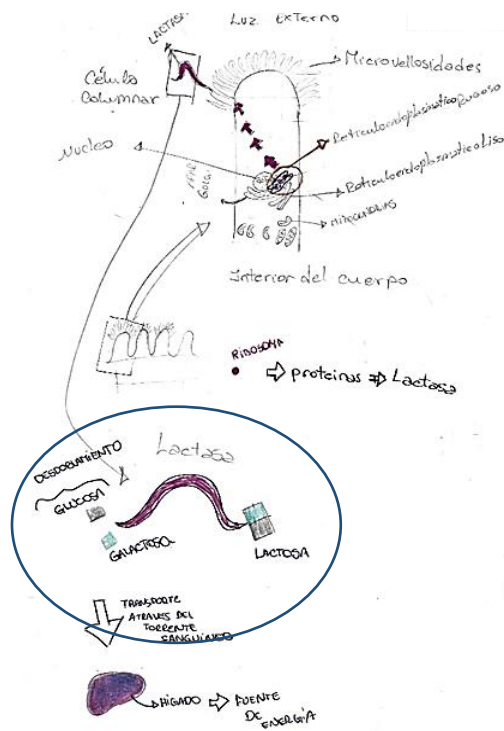 LUZ EXTERNO
LACTASA
Microvellosidades
Célula
Columnar
Reticuloendoplasmatico Rugoso
NUCLEO
Reticuloendoplasmatico Liso
APAR
GOLGI
MITOCONDRIAS
Interior del cuerpo
RIBOSOMA
proteinas
Lactasa
Lactasa
DESDOBLAMIENTO
GLUCOSA
GALACTOSA
LACTOSA
TRANSPORTE
ATRAVES DEL
TORRENTE
SANGUÍNEO
HÍGADO
FUENTE
DE
ENERGÍA